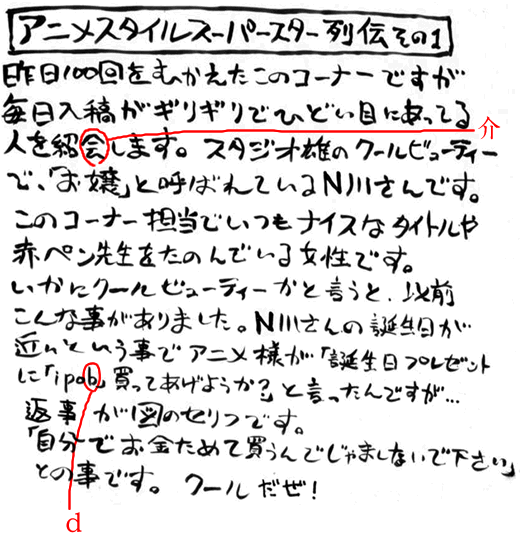 アニメスタイルスーパースター列伝その1
昨日100回をむかえたこのコーナーですが
毎日入稿がギリギリでひどい目にあってる
人を紹会します。スタジオ雄のクールビューティー
介
で、「お嬢」と呼ばれているN川さんです。
このコーナー担当でいつもナイスなタイトルや
赤ペン先生をたのんでいる女性です。
いかにクールビューティーかと言うと、以前
こんな事がありました。N川さんの誕生日が
近いという事でアニメ様が「誕生日プレゼント
に「ipob」買ってあげようか?」と言ったんですが…
返事が図のセリフです。
「自分でお金ためて買うんでじゃましないで下さい」
との事です。クールだぜ!
d